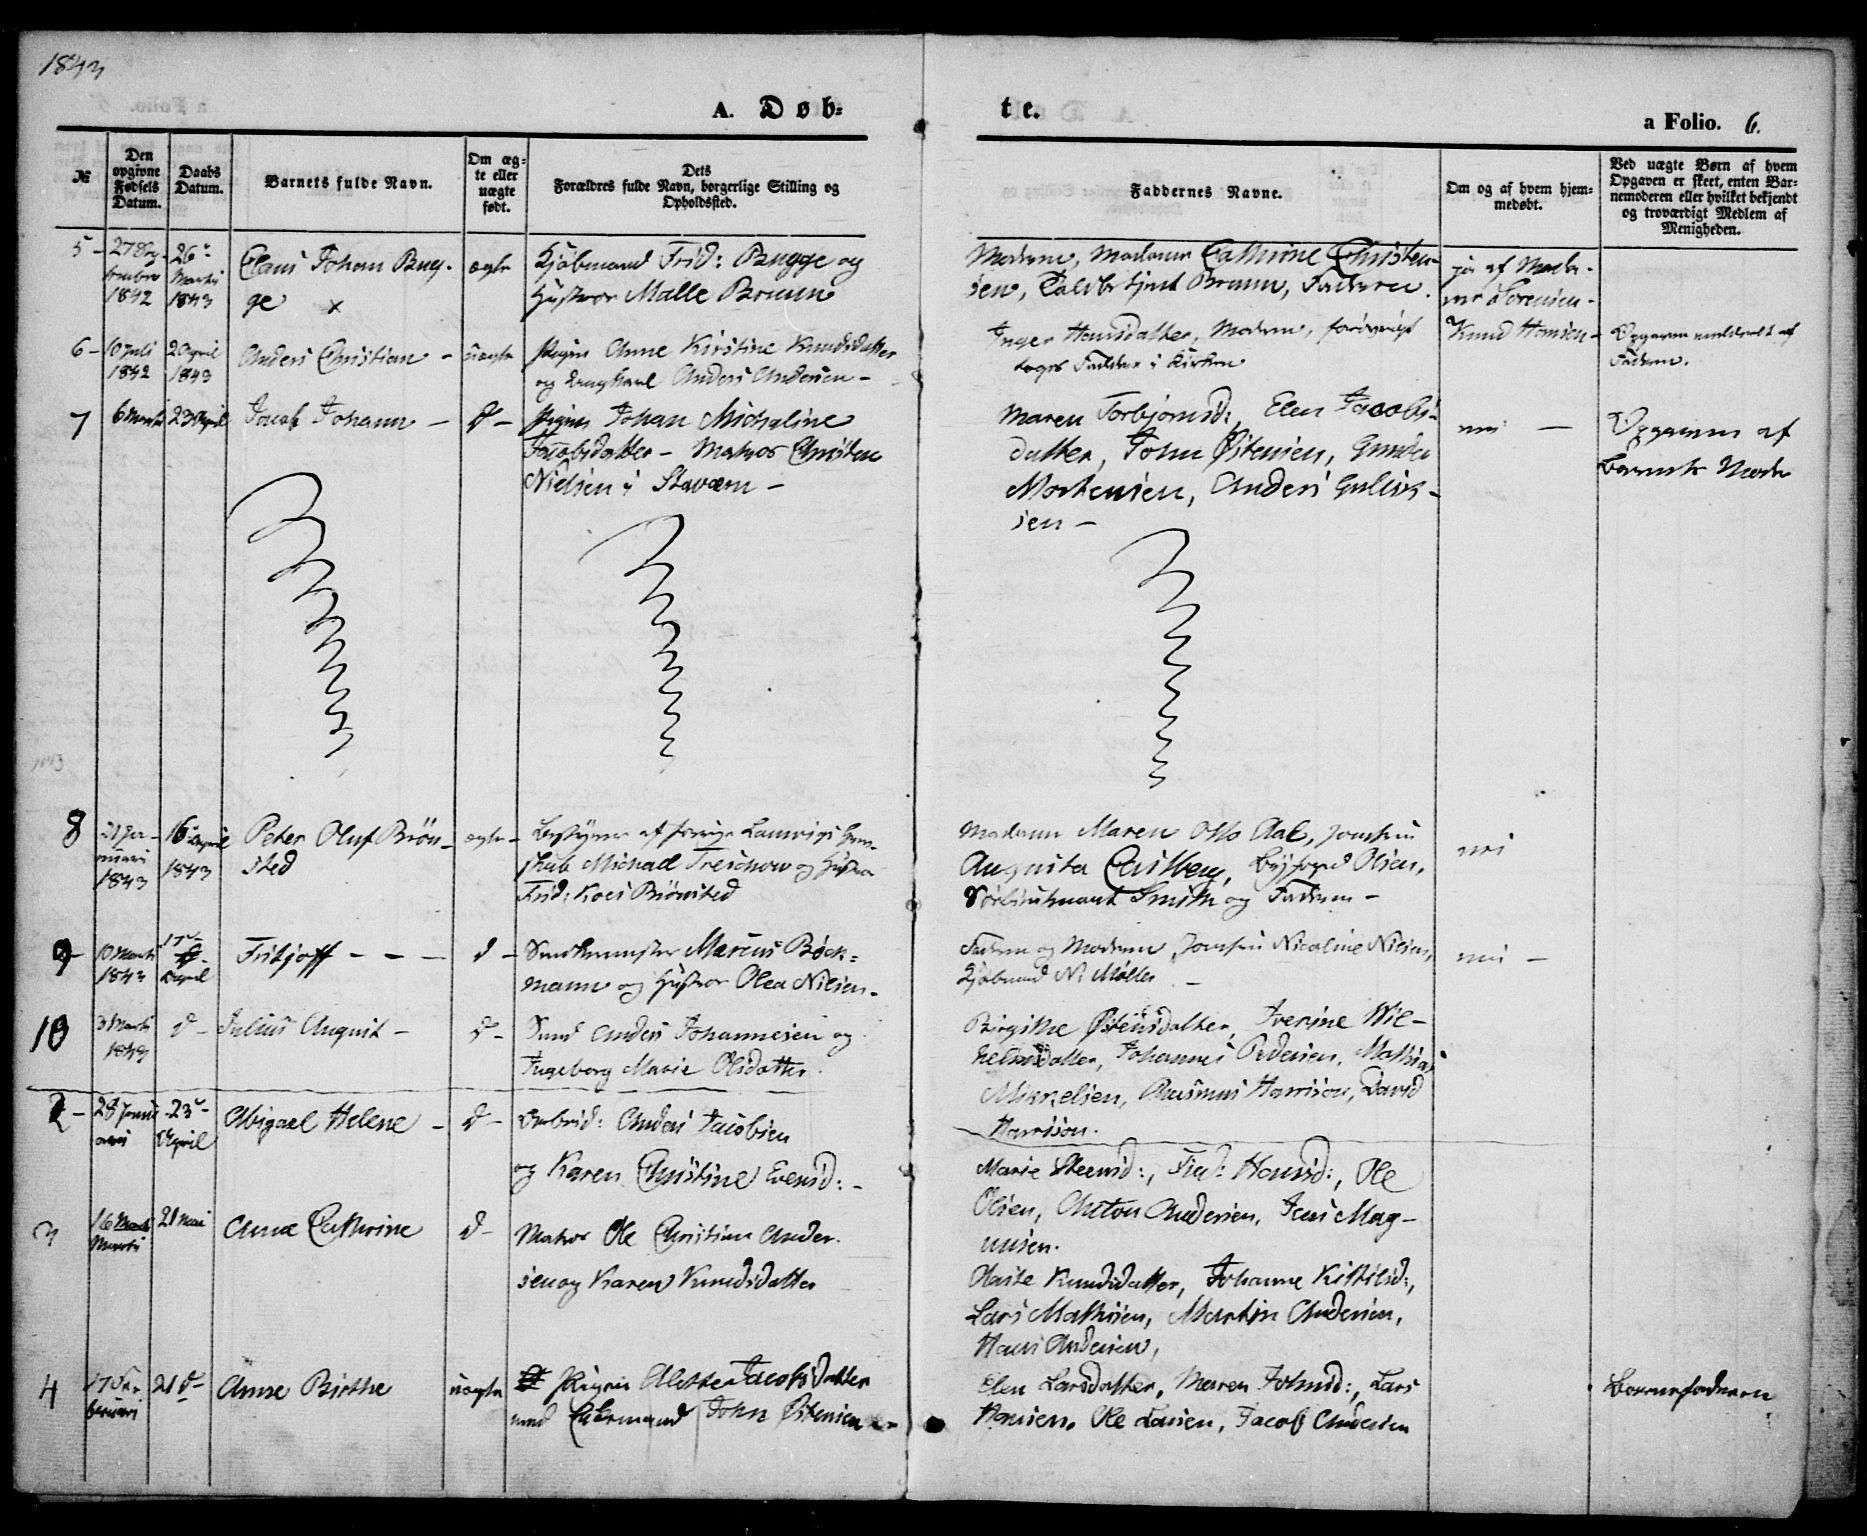 1843
A. Døb=
te.
a Folio. 6.
№
Den opgivne Fødsels Datum.
Daabs Datum.
Barnets fulde Navn.
Om ægte eller uægte født.
Dets Forældres fulde Navn, borgerlige Stilling og Opholdssted.
Faddernes Navne.
Om og af hvem hjemmedøbt.
Ved uægte Børn af hvem Opgaven er skeet, enten Barnemoderen eller hvilket bekjendt og troværdigt Medlem af Menigheden.
5 -
1842
26
Martii
1843
Claus Johan Bug-
ge x
ægte
Kjøbmand Frid: Bugge og
Hustroe Malle Bruun
Moderen, Madame Cathrine Christen-
sen, Bruun, Faderen.
ja af Mada-
me Sørensen -
6 -
10 Juli
1842
2 April
1843
Anders Christian -
uægte
Pigen Anne Kirstine Knudsdatter
og Ungkarl Anders Andersen -
Inger Hansdatter, Moderen, forøvrigt
toges Faddere i Kirken
Knud Hansen -
Opgaven meddeelt af
Faderen.
7
6 Martii
23 April
Jacob Johann -
d -
Pigen Johan Michaline
Jacobsdatter - Matros Christen
Nielsen i Staværn -
Maren Torbjørnsd:, Elen Jacobs-
datter, John Østensen, Gunder
Mortensen, Anders Gulliks-
sen -
nei -
Opgaven af
Barnets Moder
8
21 Ja-
nuari
1843
16 April
1843
Peter Oluf Brøn-
sted
ægte -
Bestyrer af forrige Laurvigs Grev-
skab Michael Treschow og Hustroe
Frid: Koes Brønsted
Madame Maren Otto Aal, Jomfru
Augusta Castberg, Byfoged Olsen,
Smith og Faderen -
nei
9 -
10 Martii
1843
17
April
Fritjoff - - -
d -
Marcus Böck=
mann og Hustroe Olea Nielsen -
Faderen og Moderen, Jomfru Nicoline Nielsen,
Kjøbmand N. Møller -
nei -
10
3 Martii
1843
d -
Julius August -
d -
Anders Johannesen og
Ingeborg Marie Olsdatter.
Birgithe Østensdatter, Iverine Wil-
helmsdatter, Johannes Pedersen, Mathias
Mikkelsen, Rasmus Harrison, David
Harrison.
2 -
28 Janu-
ari
23 -
April
Abigael Helene -
d -
Anders Jacobsen
og Karen Christine Evensd: -
Marie Steensd:, Hansd:, Ole
Olsen, Anton Andersen, Jens Mag-
nusen.
3
16
Martii
21 Mai
Anne Cathrine
d -
Matros Ole Christian Ander-
sen og Karen Knudsdatter
Knudsdatter, Johanne Kittilsd:,
Lars Mathisen, Martin Andersen,
Hans Andersen,
4
17 Fe-
bruari
21 d -
Anne Birthe
uægte
Pigen Alette Jacobsdatter
med John Østensen
Elen Larsdatter, Maren Johnsd:, Lars
Hansen, Ole Larsen, Jacob Andersen
Barnefaderen